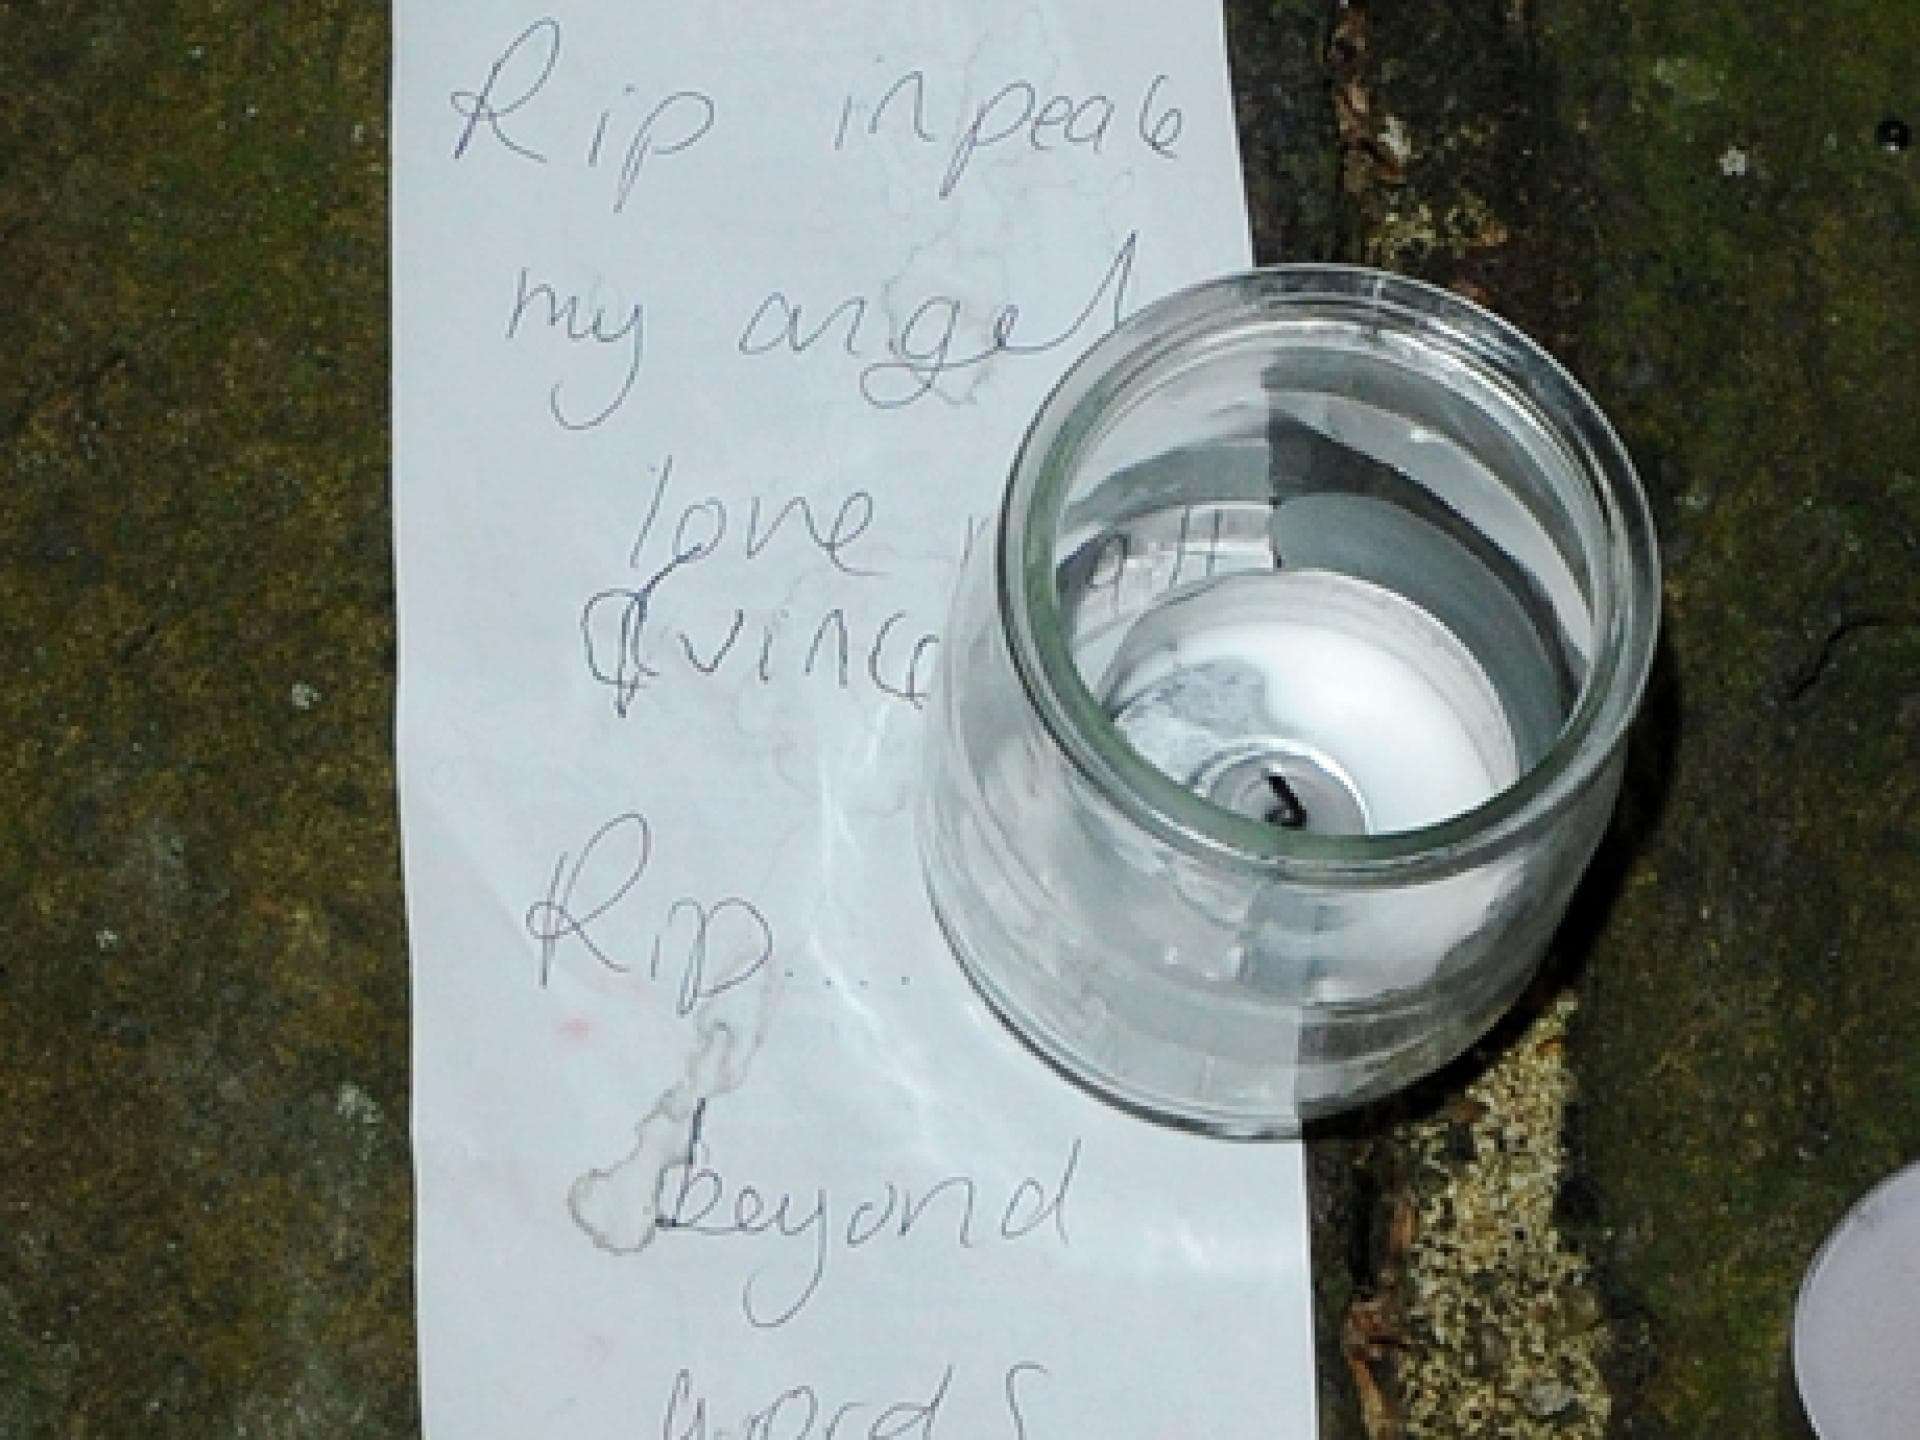 Rip in peace
my angel
love
& vince
Rip....
beyond
words